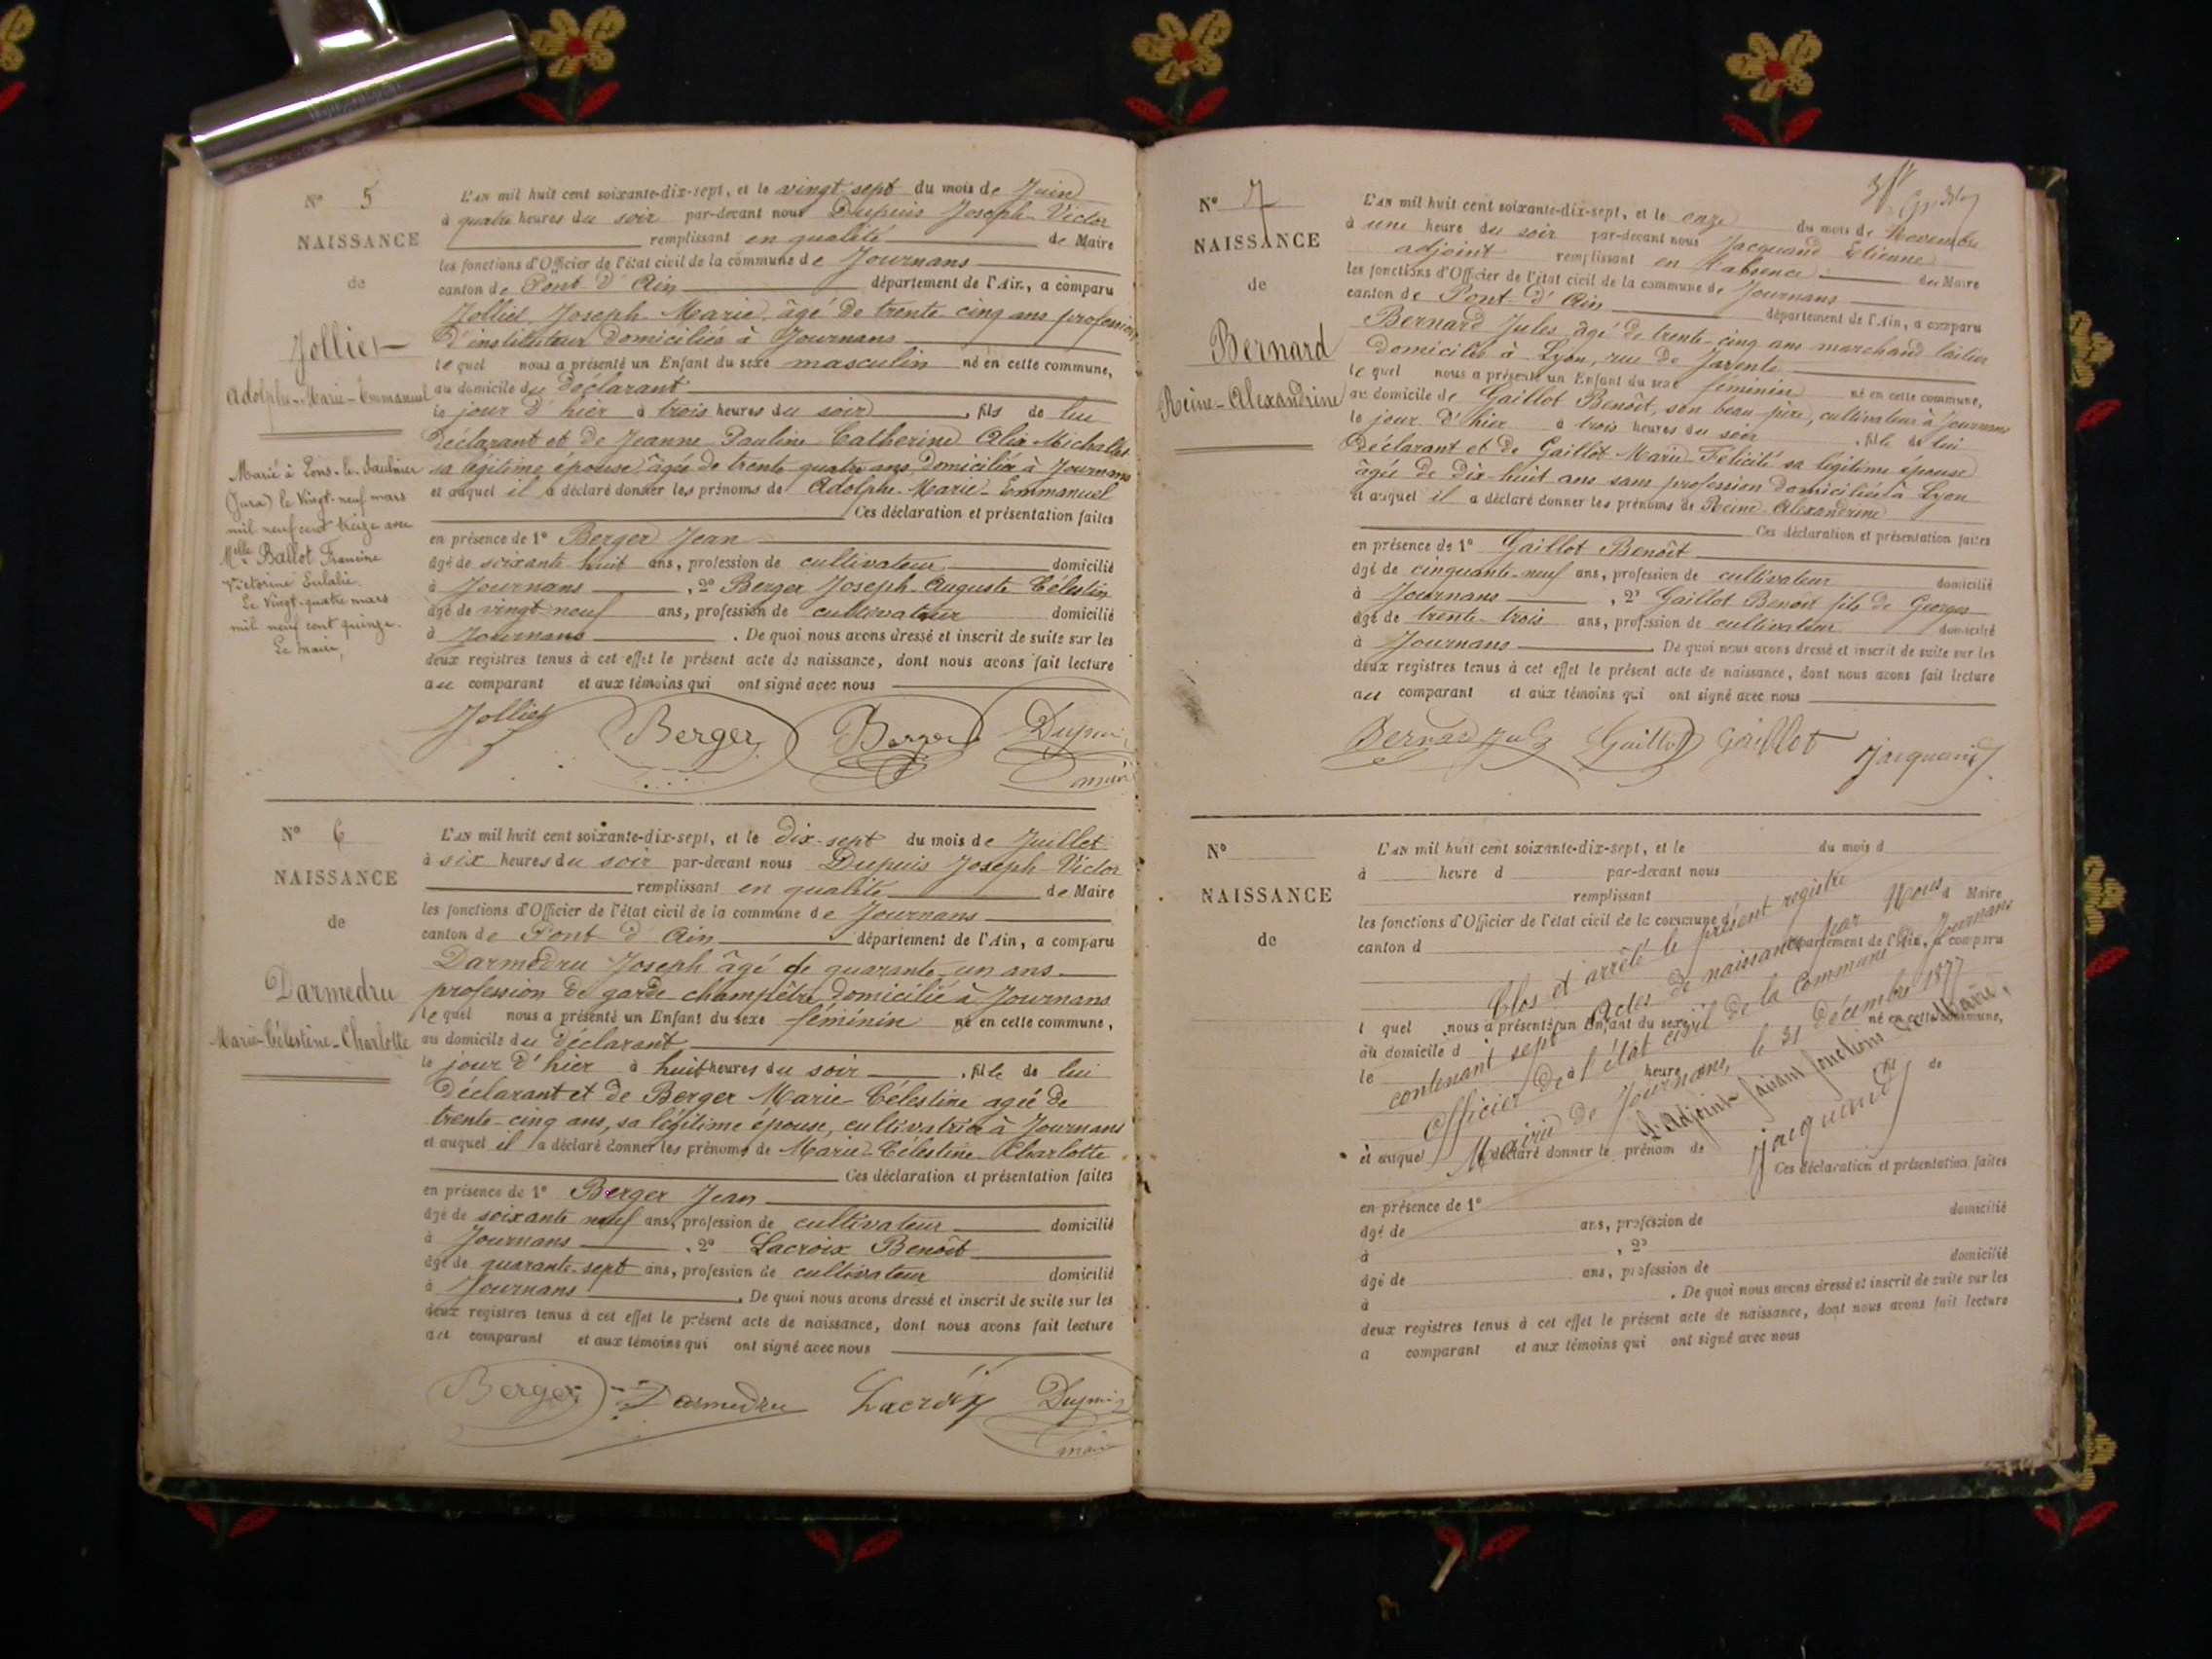 N° 5
NAISSANCE
de
Jollier
Adolphe-Marie-Emmanuel
Marié à Lons-le-Saulnier
(Jura) le Vingt-neuf mars
mil neuf cent treize avec
Melle Ballot Francine
Victorine Eulalie.
Le Vingt-quatre mars
mil neuf cent quinze.
Le maire,
L'AN mil huit cent soixante-dix-sept, et le vingt sept du mois de Juin
à quatre heures du soir par-devant nous Dupuis Joseph-Victor
remplissant en qualité de Maire
les fonctions d'Officier de l'état civil de la commune de Journans
canton de Pont d'Ain département de l'Ain, a comparu
Jollier, Joseph-Marie, âgé de trente cinq ans profession
d'instituteur domicilié à Journans
lequel nous a présenté un Enfant du sexe masculin né en cette commune,
au domicile du déclarant
le jour d'hier à trois heures du soir, fils de lui
déclarant et de Jeanne Pauline Catherine Alix Michallet
sa légitime épouse, âgée de trente quatre ans domiciliée à Journans
et auquel il a déclaré donner les prénoms de Adolphe-Marie-Emmanuel
Ces déclaration et présentation faites
en présence de 1° Berger Jean
âgé de soixante huit ans, profession de cultivateur domicilié
à Journans, 2° Berger Joseph-Auguste Célestin
âgé de vingt-neuf ans, profession de cultivateur domicilié
à Journans. De quoi nous avons dressé et inscrit de suite sur les
deux registres tenus à cet effet le présent acte de naissance, dont nous avons fait lecture
au comparant et aux témoins qui ont signé avec nous
Jollier Berger Berger Dupuis
maire
N° 6
NAISSANCE
de
Darmedru
Marie-Célestine-Charlotte
L'AN mil huit cent soixante-dix-sept, et le dix-sept du mois de Juillet
à six heures du soir par-devant nous Dupuis Joseph-Victor
remplissant en qualité de Maire
les fonctions d'Officier de l'état civil de la commune de Journans
canton de Pont d'Ain département de l'Ain, a comparu
Darmedru Joseph âgé de quarante-un ans
profession de garde champêtre domicilié à Journans
lequel nous a présenté un Enfant du sexe féminin né en cette commune,
au domicile du déclarant
le jour d'hier à huit heures du soir, fille de lui
déclarant et de Berger Marie-Célestine agée de
trente-cinq ans, sa légitime épouse, cultivatrice à Journans
et auquel il a déclaré donner les prénoms de Marie-Célestine-Charlotte
Ces déclaration et présentation faites
en présence de 1° Berger Jean
âgé de soixante neuf ans, profession de cultivateur domicilié
à Journans, 2° Lacroix Benoît
âgé de quarante-sept ans, profession de cultivateur domicilié
à Journans. De quoi nous avons dressé et inscrit de suite sur les
deux registres tenus à cet effet le présent acte de naissance, dont nous avons fait lecture
au comparant et aux témoins qui ont signé avec nous
Berger Darmedru Lacroix Dupuis
maire
N° 7
NAISSANCE
de
Bernard
Reine-Alexandrine
L'AN mil huit cent soixante-dix-sept, et le onze du mois de Novembre
à une heure du soir par-devant nous Jacquand Etienne
adjoint remplissant en l'absence du Maire
les fonctions d'Officier de l'état civil de la commune de Journans
canton de Pont-d'Ain département de l'Ain, a comparu
Bernard Jules, âgé de trente-cinq ans marchand laitier
domicilié à Lyon, rue de Jarente
lequel nous a présenté un Enfant du sexe féminin né en cette commune,
au domicile de Gaillot Benoît, son beau père, cultivateur à Journans
le jour d'hier à trois heures du soir, fille de lui
déclarant et de Gaillot Marie-Félicité sa légitime épouse
âgée de dix-huit ans sans profession domiciliée à Lyon
et auquel il a déclaré donner les prénoms de Reine-Alexandrine
Ces déclaration et présentation faites
en présence de 1° Gaillot Benoît
âgé de cinquante-neuf ans, profession de cultivateur domicilié
à Journans, 2° Gaillot Benoît fils de Georges
âgé de trente-trois ans, profession de cultivateur domicilié
à Journans. De quoi nous avons dressé et inscrit de suite sur les
deux registres tenus à cet effet le présent acte de naissance, dont nous avons fait lecture
au comparant et aux témoins qui ont signé avec nous
Bernard Jules Gaillot Gaillot Jacquand
N°
NAISSANCE
de
L'AN mil huit cent soixante-dix-sept, et le du mois d
à heure d par-devant nous
remplissant d Maire
les fonctions d'Officier de l'état civil de la commune d
canton d département de l'Ain, a comparu
l quel nous a présenté un Enfant du sexe né en cette commune,
au domicile d
le à heure d , fil de
et auquel a déclaré donner le prénom de
Ces déclaration et présentation faites
en présence de 1°
âgé de ans, profession de domicilié
à , 2°
âgé de ans, profession de domicilié
à . De quoi nous avons dressé et inscrit de suite sur les
deux registres tenus à cet effet le présent acte de naissance, dont nous avons fait lecture
a comparant et aux témoins qui ont signé avec nous
Clos et arrêté le présent registre
contenant sept Actes de naissances par Nous
Officier de l'état civil de la Commune de Journans
Mairie de Journans, le 31 décembre 1877
L'Adjoint faisant fonctions de Maire,
Jacquand